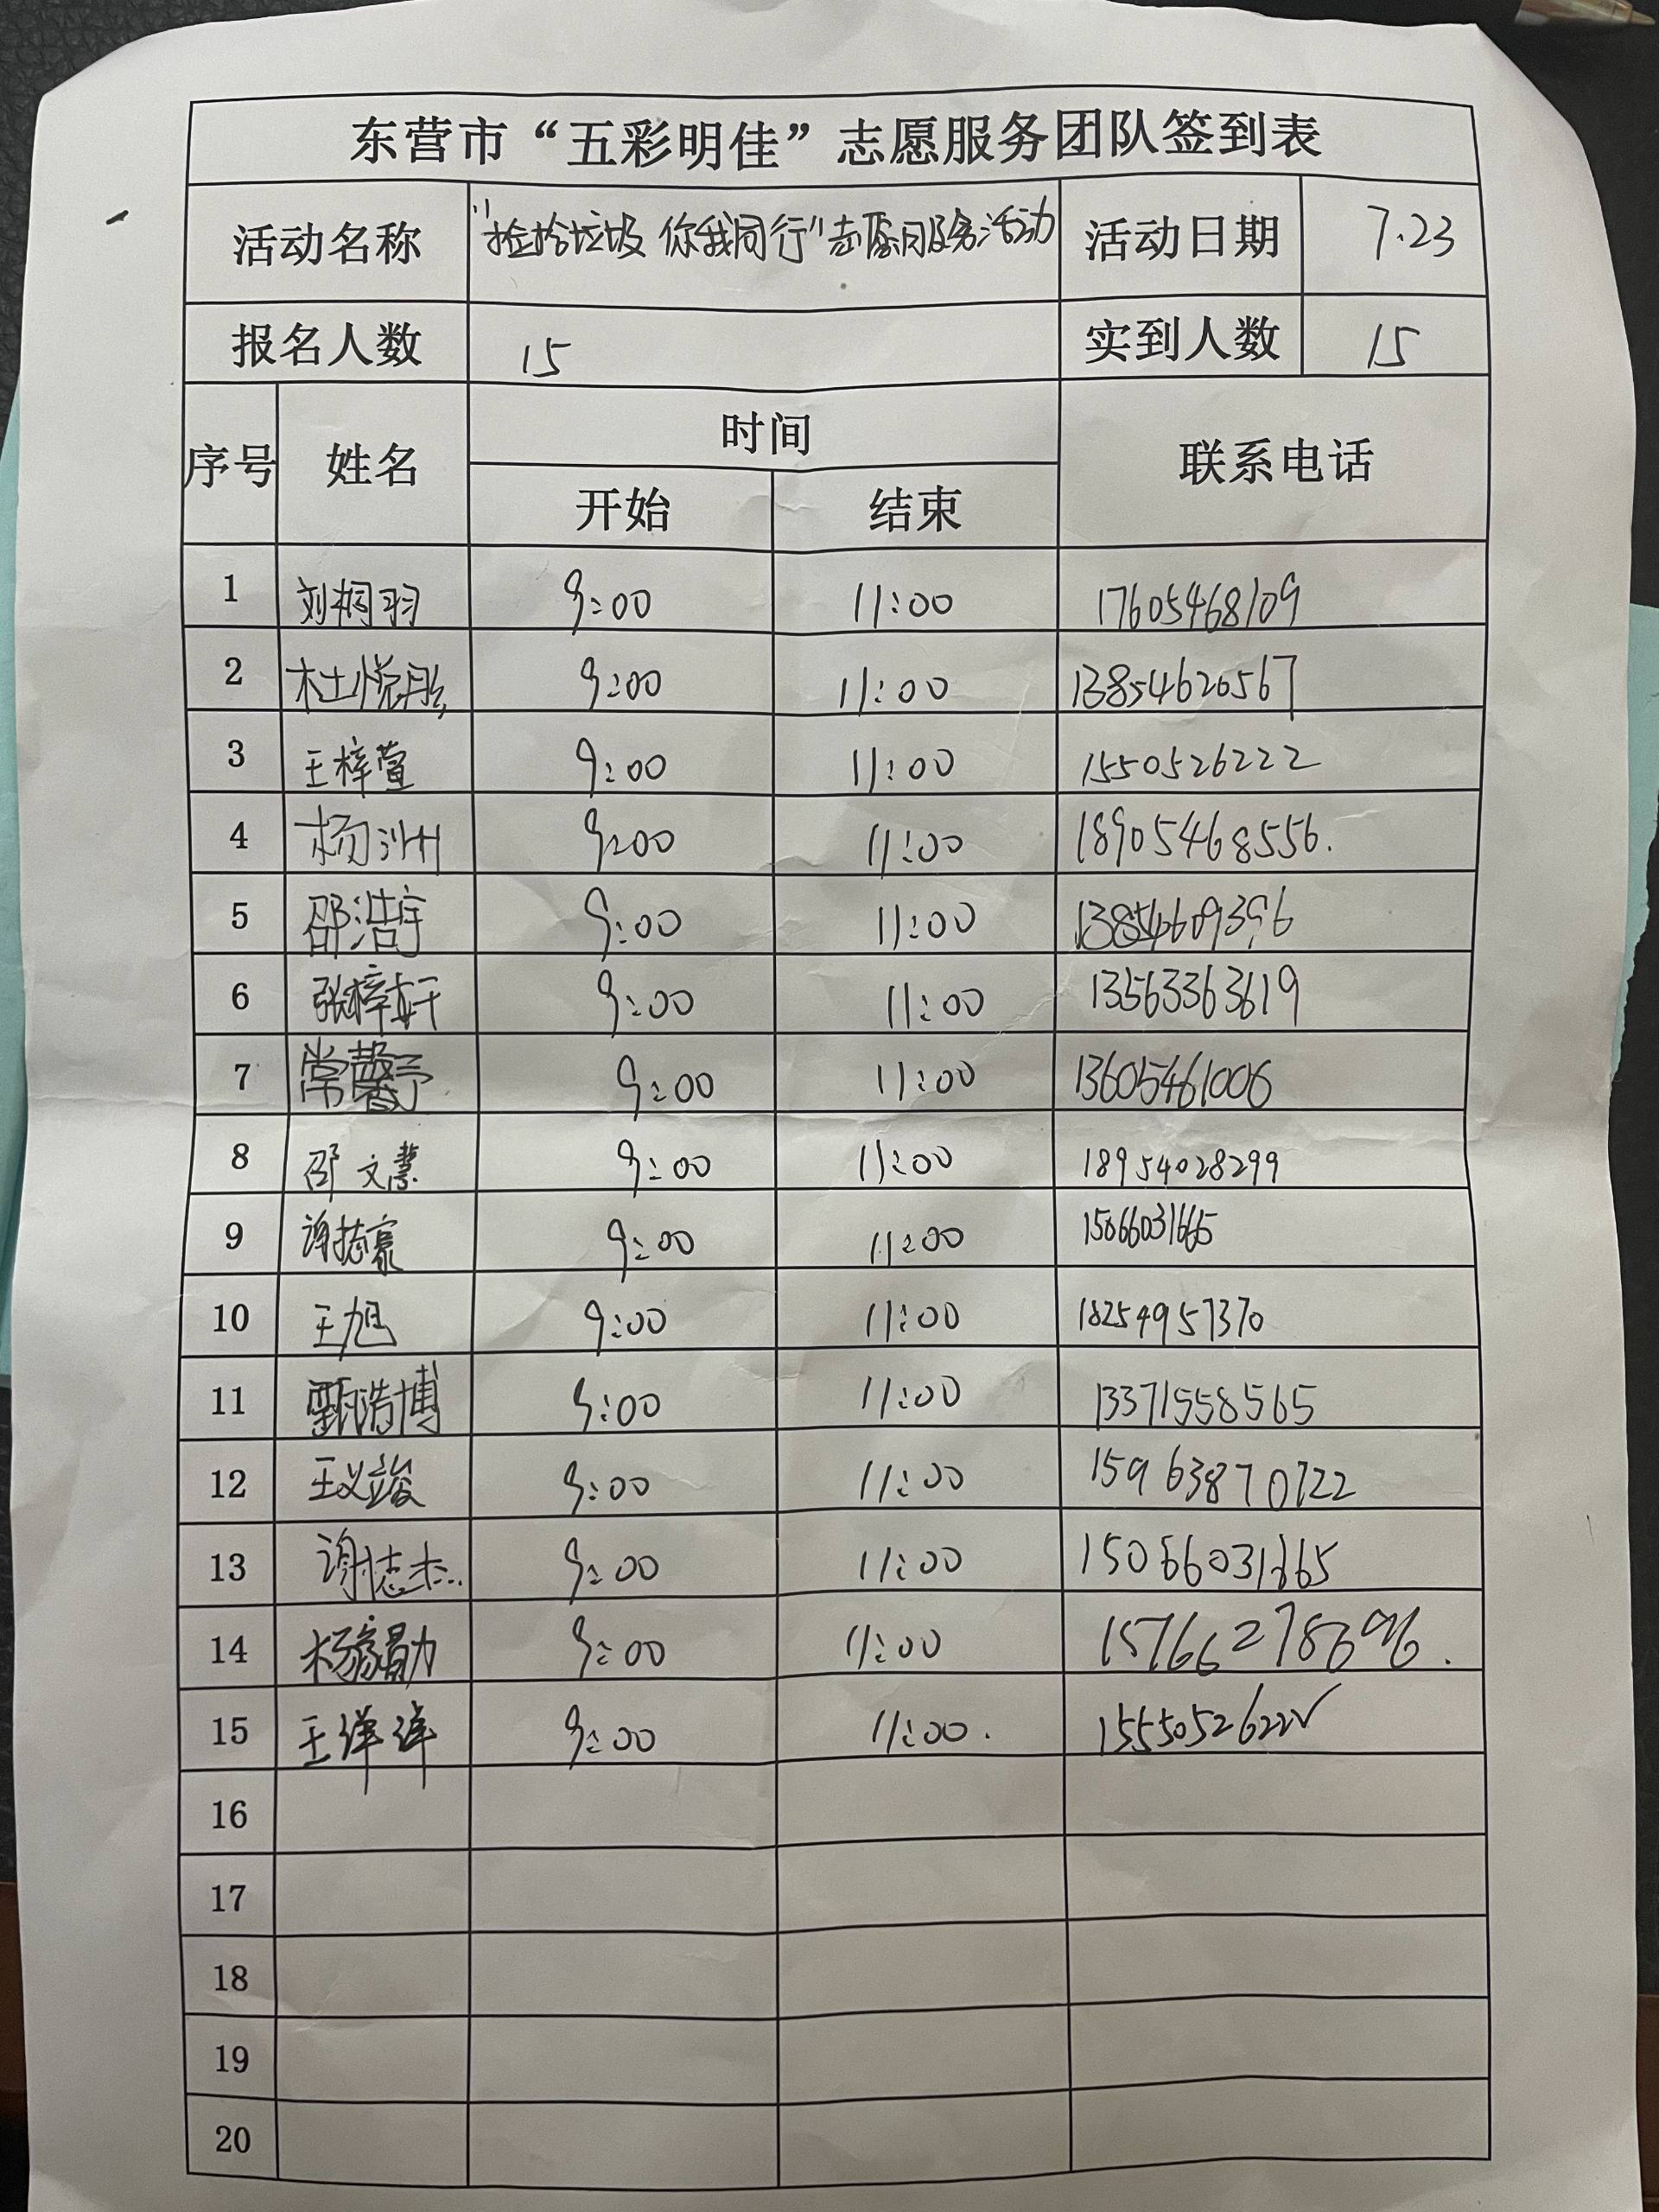 东营市“五彩明佳”志愿服务团队签到表
活动名称 “捡拾垃圾 你我同行”志愿服务活动 活动日期 7.23
报名人数 15 实到人数 15
序号 姓名 时间 联系电话
开始 结束
1 刘桐羽 9:00 11:00 17605468109
2 杜悦彤 9:00 11:00 13854626567
3 王梓萱 9:00 11:00 1550526222
4 杨洲 9:00 11:00 18905468556.
5 邵浩宇 9:00 11:00
6 张梓轩 9:00 11:00 13563363619
7 常馨予 9:00 11:00 13605461006
8 邵文慧 9:00 11:00 18954028299
9 谢志豪 9:00 11:00 15066031665
10 王旭 9:00 11:00 18254957370
11 甄浩博 9:00 11:00 13371558565
12 王义竣 9:00 11:00 15963870722
13 谢志杰 9:00 11:00 15066031665
14 9:00 11:00
15 王洋洋 9:00 11:00.
16
17
18
19
20